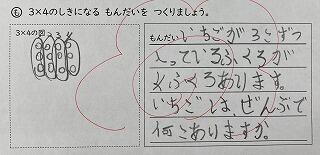 も 3×4のしきになる もんだいを つくりましょう。
3×4の図
2 3 4
もんだい いちごが 3こずつ
入っているふくろが
4ふくろあります。
いちごは ぜんぶで
何こありますか。